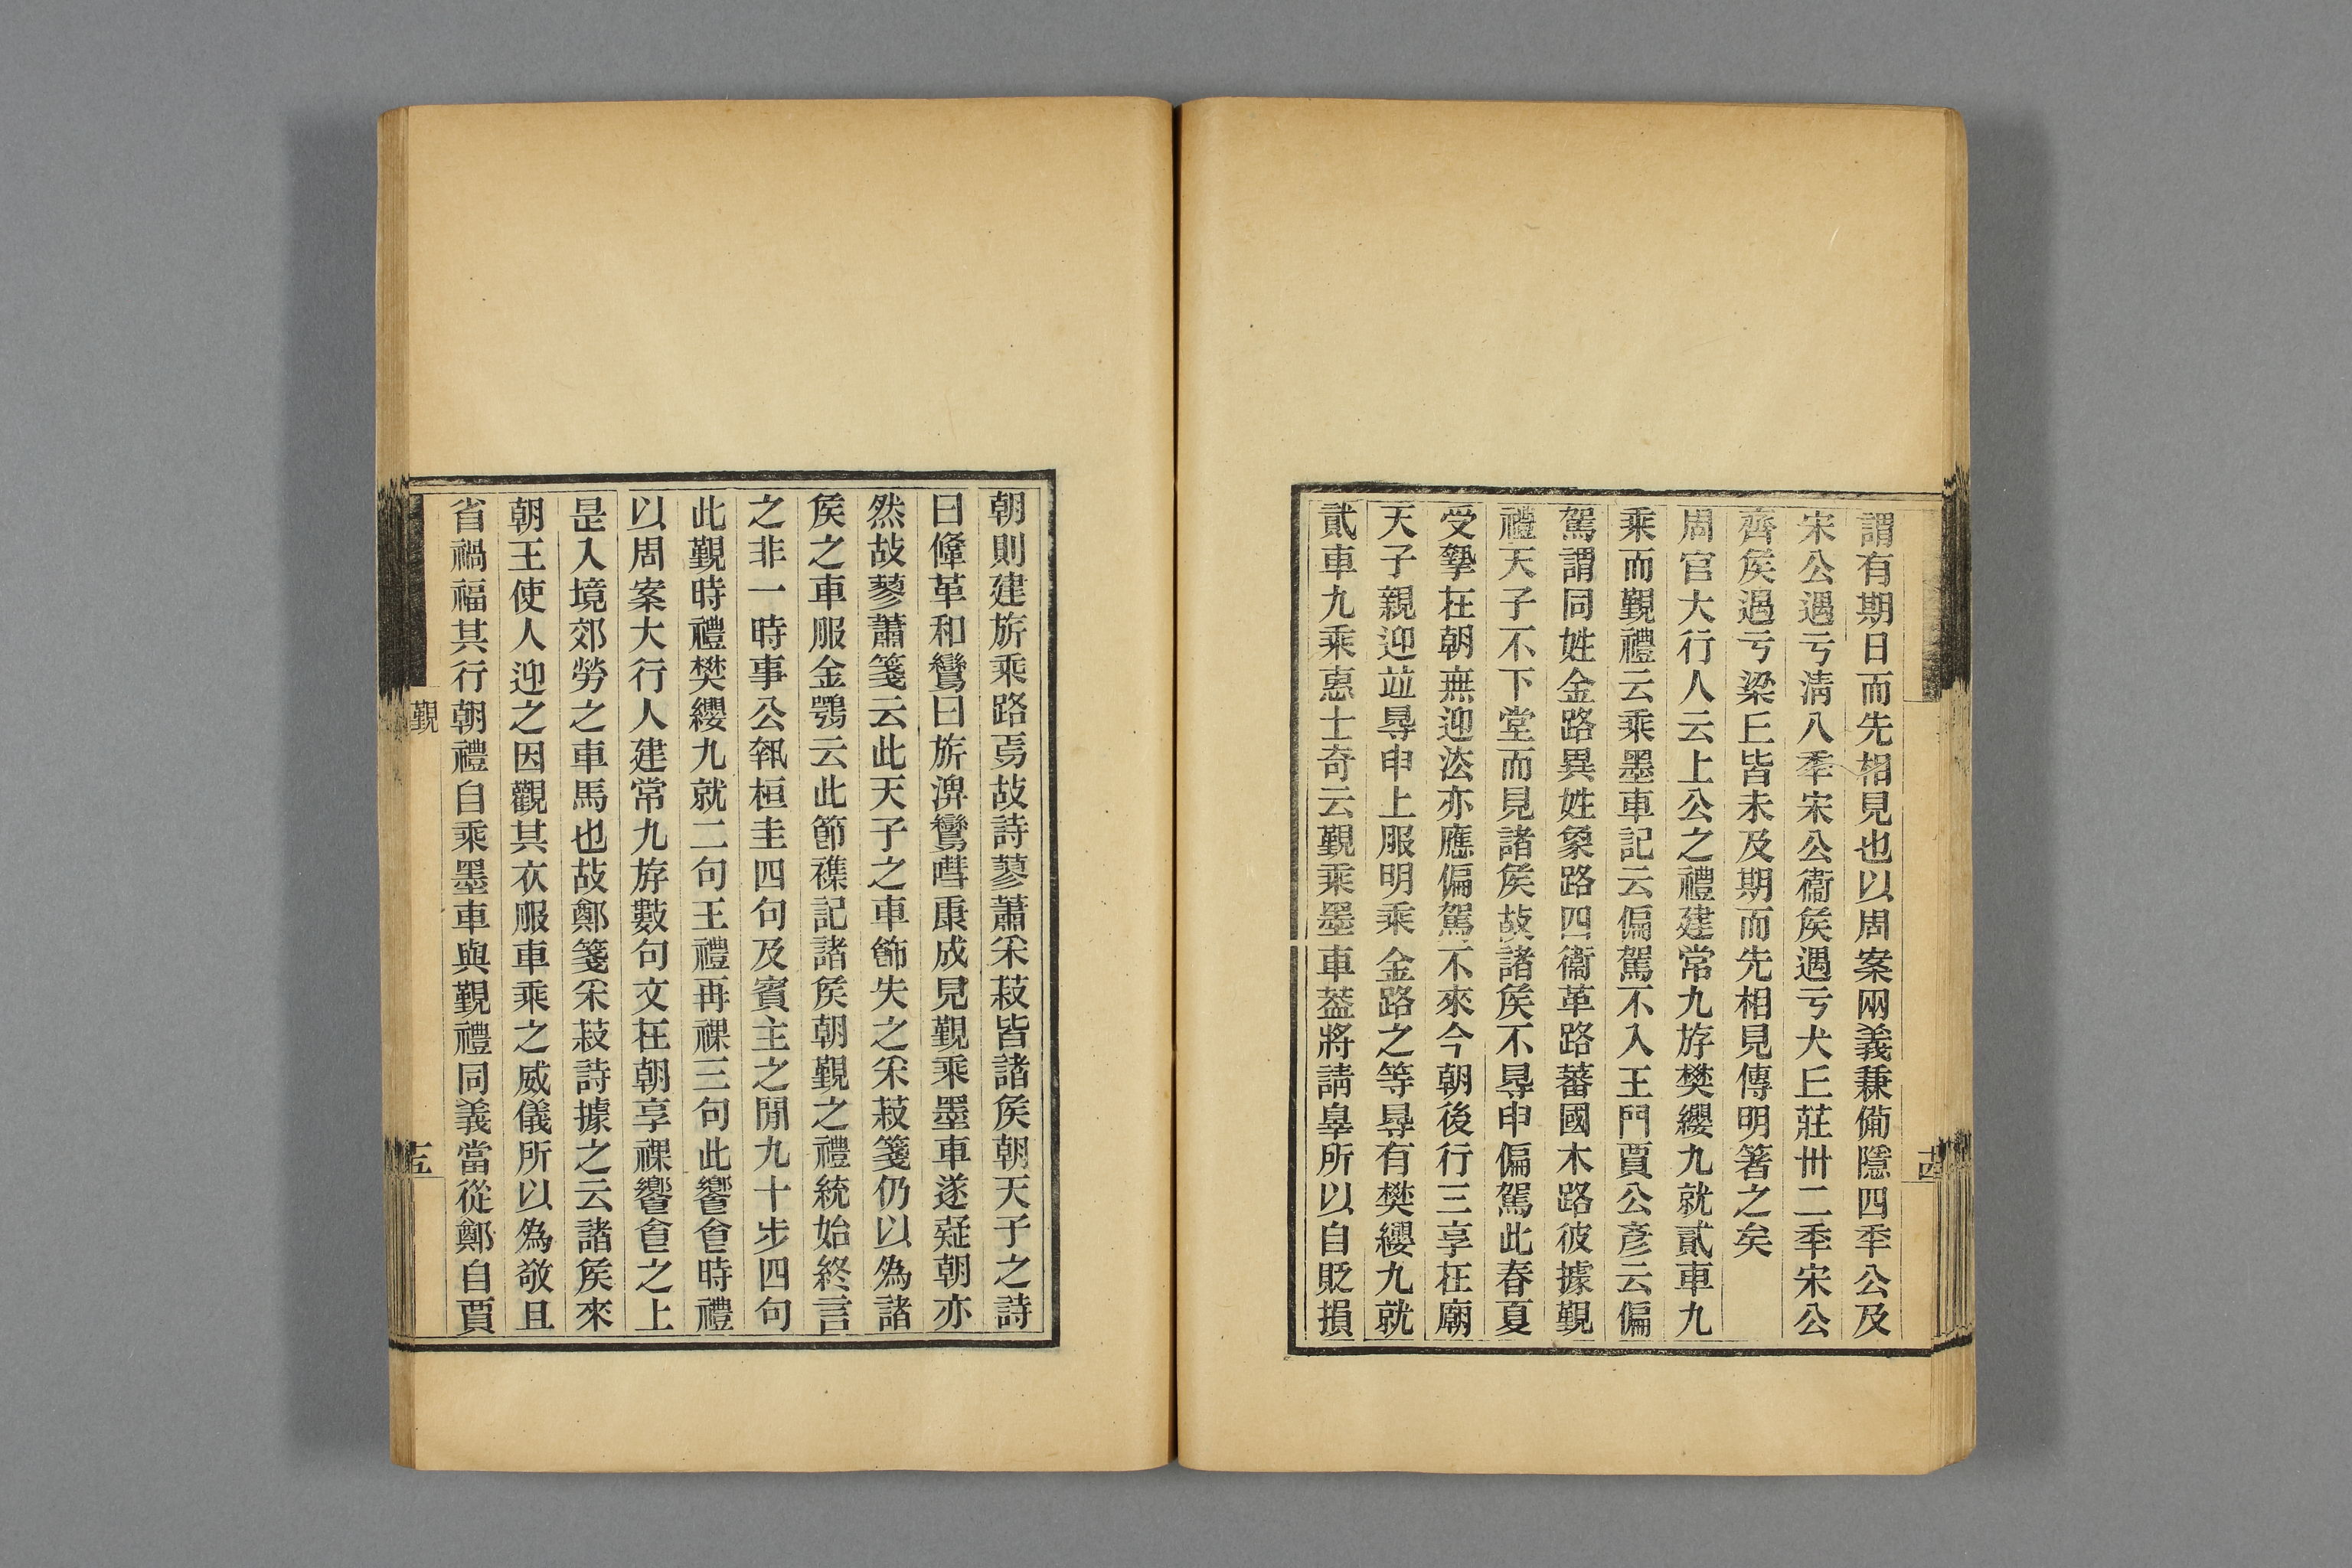 謂有期日而先相見也以周案兩義秝備隱四秊公及
宋公遇亏淸八秊宋公衞矦遇亏犬𠀌莊卅二秊宋公
齊矦遇亏梁𠀌皆未及期而先相見傳明箸之矣
周官大行人云上公之禮建常九斿樊纓九就貳車九
乘而覲禮云乘墨車記云偏駕不入王門賈公彥云偏
駕謂同姓金路異姓象路四衞革路蕃國木路彼據覲
禮天子不下堂而見諸矦故諸矦不㝵申偏駕此春夏
受摯在朝無迎法亦應偏駕不來今朝後行三享在廟
天子親迎竝㝵申上服明乘金路之等㝵有樊纓九就
貳車九乘惠士奇云覲乘墨車葢將請辠所以自貶損
朝則建旂乘路焉故詩蓼蕭采菽皆諸矦朝天子之詩
曰鞗革和鸞曰旂淠鸞嘒康成見覲乘墨車遂疑朝亦
然故蓼蕭箋云此天子之車飾失之采菽箋仍以爲諸
矦之車服金鶚云此節襍記諸矦朝覲之禮統始終言
之非一時事公執桓圭四句及賓主之閒九十步四句
此覲時禮樊纓九就二句王禮再祼三句此饗食時禮
以周案大行人建常九斿數句文在朝享祼饗食之上
是入境郊勞之車馬也故鄭箋采菽詩據之云諸矦來
朝王使人迎之因觀其衣服車乘之威儀所以爲敬且
省禍福其行朝禮自乘墨車與覲禮同義當從鄭自賈
覲